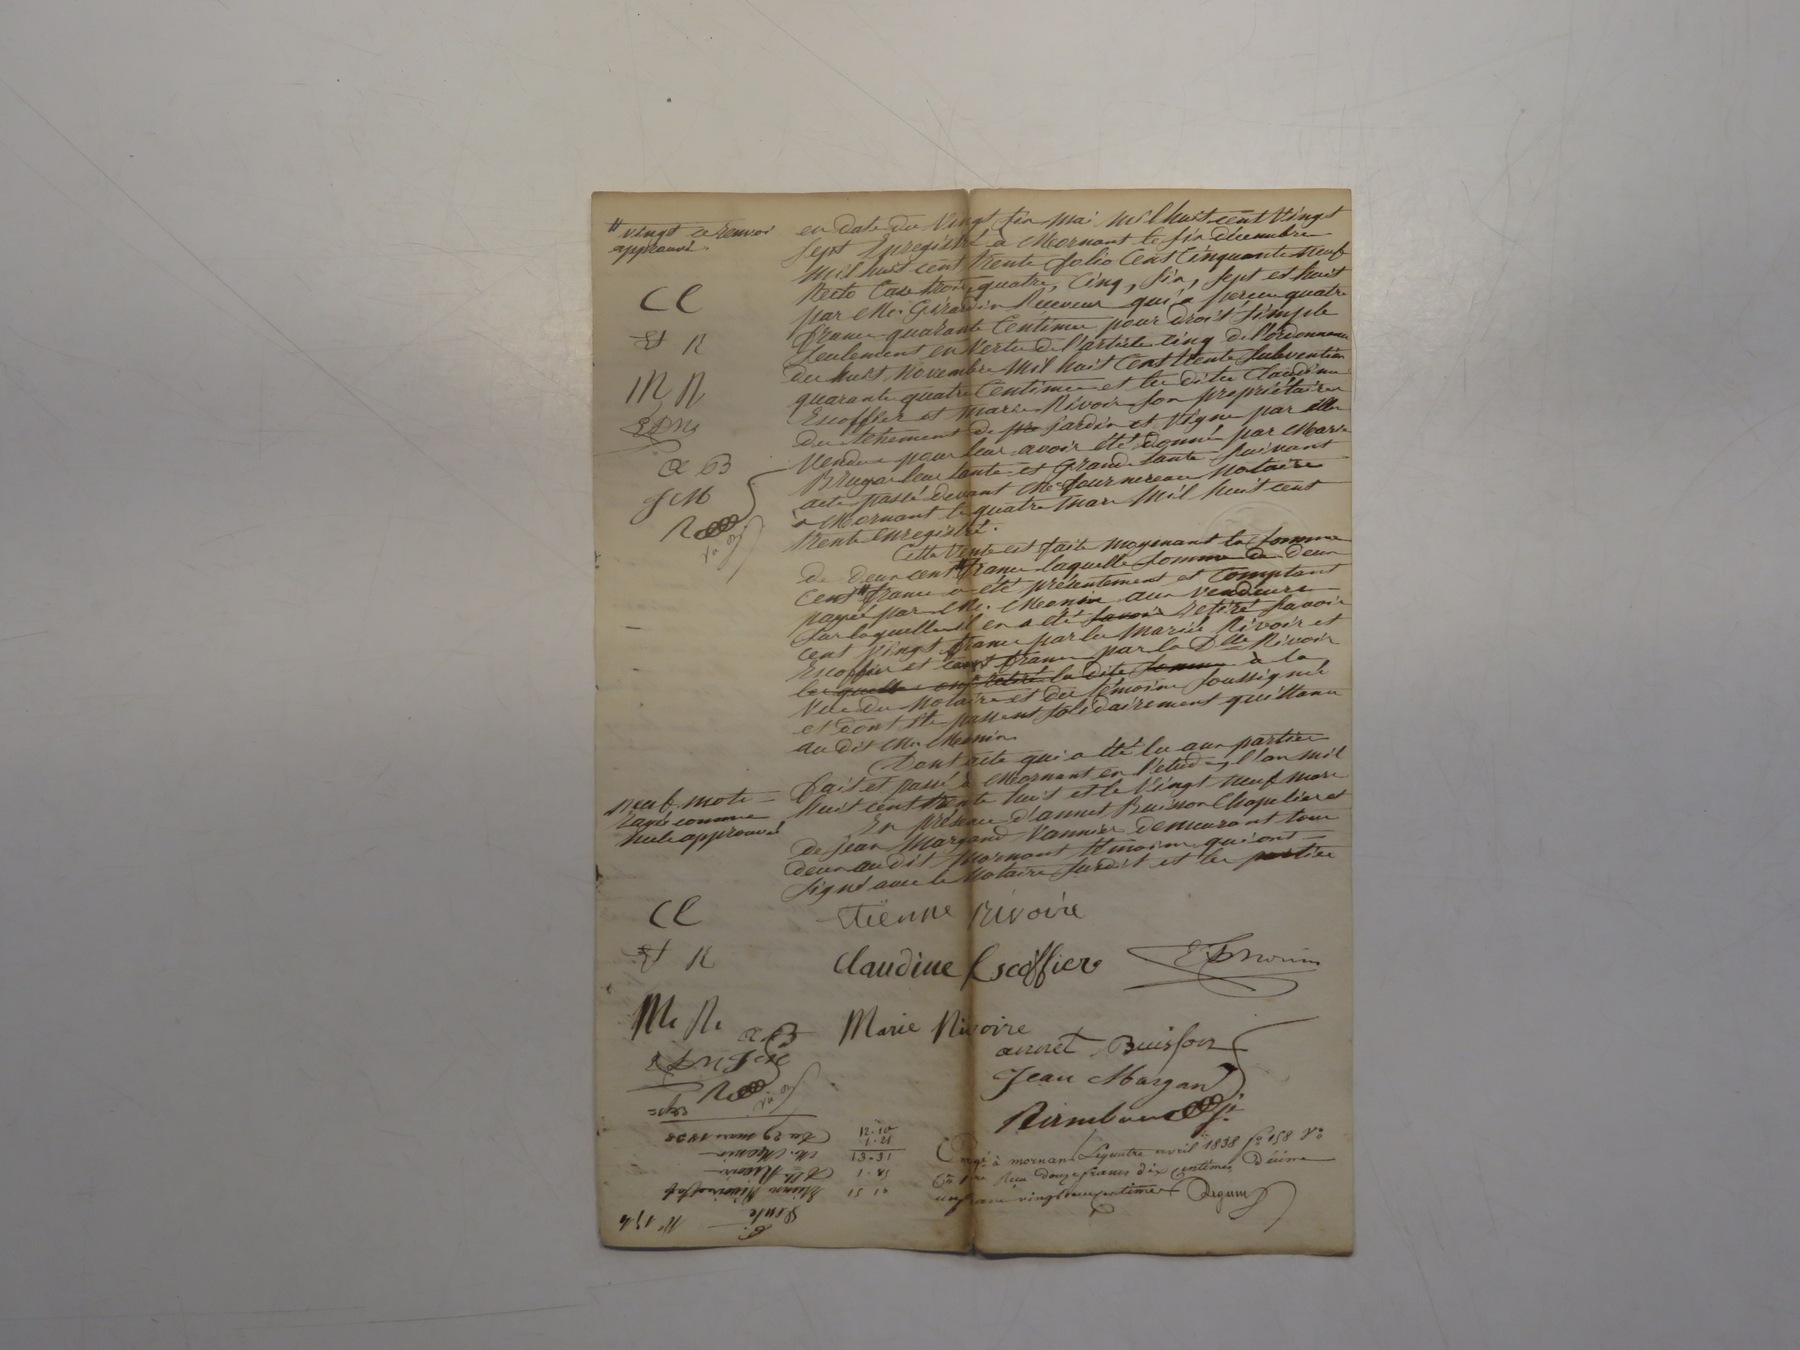 # vingt ce renvoi
approuvé.
en date du Vingt six mai mil huit cent Vingt
sept Enregistré à Mornant le six décembre
mil huit cent trente folio Cent Cinquante neuf
Recto Case trois, quatre, Cinq, six, sept et huit
par Mr. Girardin Receveur qui a perçu quatre
francs quarante Centimes pour droit simple
seulement en Vertu de l'article cinq de l'ordonnance
du huit Novembre Mil huit Cent trente Subvention
quarante quatre Centimes et les dites Claudine
Escoffier et Marie Rivoir son propriétaires
du tenement de jardin et Vigne par elles
Vendu pour leur avoir été donné par Marie
leur tante et Grand tante suivant
acte passé devant Me fournereau Notaire
à Mornant le quatre Mars Mil huit cent
trente enregistré.
CE
Et R
M R
A B
J M
Cette Vente est faite moyenant la somme
de deux cent # francs laquelle somme de deux
cent # francs a été présentement et comptant
payée par Mr. Monin aux Vendeurs
sur laquelle il en a été retiré savoir
cent Vingt francs par les Mariés Rivoir et
Escoffier et cent francs par la Dlle Rivoir
la dite somme à la
Vue du Notaire et des témoins soussignés
et dont ils passent solidairement quittance
au dit Mr Monin
Dont acte qui a été lu aux parties
fait et passé à Mornant en l'étude, l'an mil
huit cent trente huit et le Vingt neuf mars
En présence d'annet Buisson Chapelier et
de jean Margand Vannier demeurant tous
deux au dit Mornant témoins qui ont
signé avec le Notaire susdit et les parties
Neuf mots
rayés comme
nuls approuvé
CE
Etienne Rivoire
Et R
Claudine Escoffier
M. R.
Marie Rivoire
A B
annet Buisson
Jean Margand
à mornant le quatre avril 1838 fo 158 Vo
Reçu douze francs dix centimes Décime
un franc vingt un centimes
12.10
1.21
13.31
Du 29 mars 1838
Mr. Monin
Etienne Rivoire
Vente